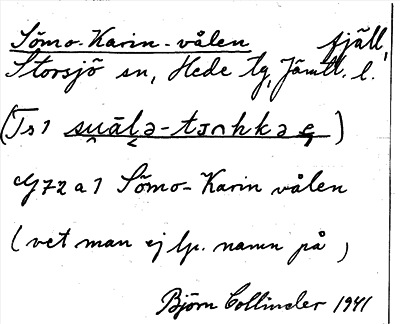 Sömo-Karin-vålen fjäll,
Storsjö sn, Hede tg, Jämtl. l.
(Ts 1
G 72 a 1 Sömo-Karin vålen
(vet man ej lp. namn på)
Björn Collinder 1941